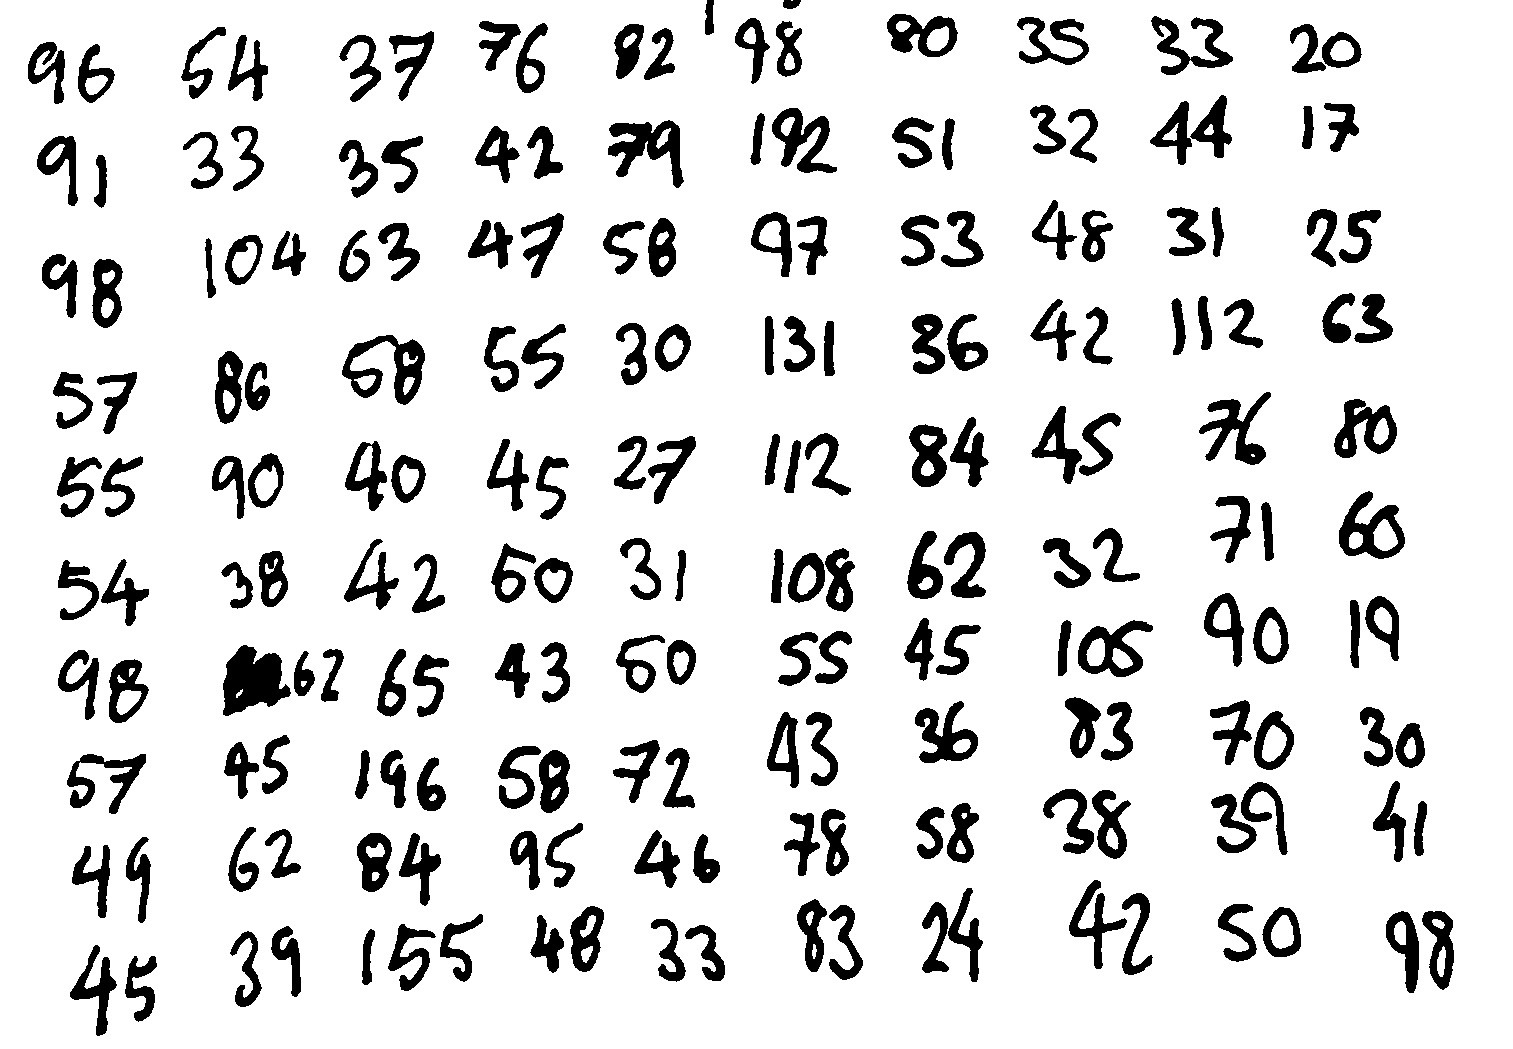 96 54 37 76 82 98 80 35 33 20
91 33 35 42 79 192 51 32 44 17
98 104 63 47 58 97 53 48 31 25
57 86 58 55 30 131 36 42 112 63
55 90 40 45 27 112 84 45 76 80
54 38 42 50 31 108 62 32 71 60
98 62 65 43 50 55 45 105 90 19
57 45 196 58 72 43 36 83 70 30
49 62 84 95 46 78 58 38 39 41
45 39 155 48 33 83 24 42 50 98